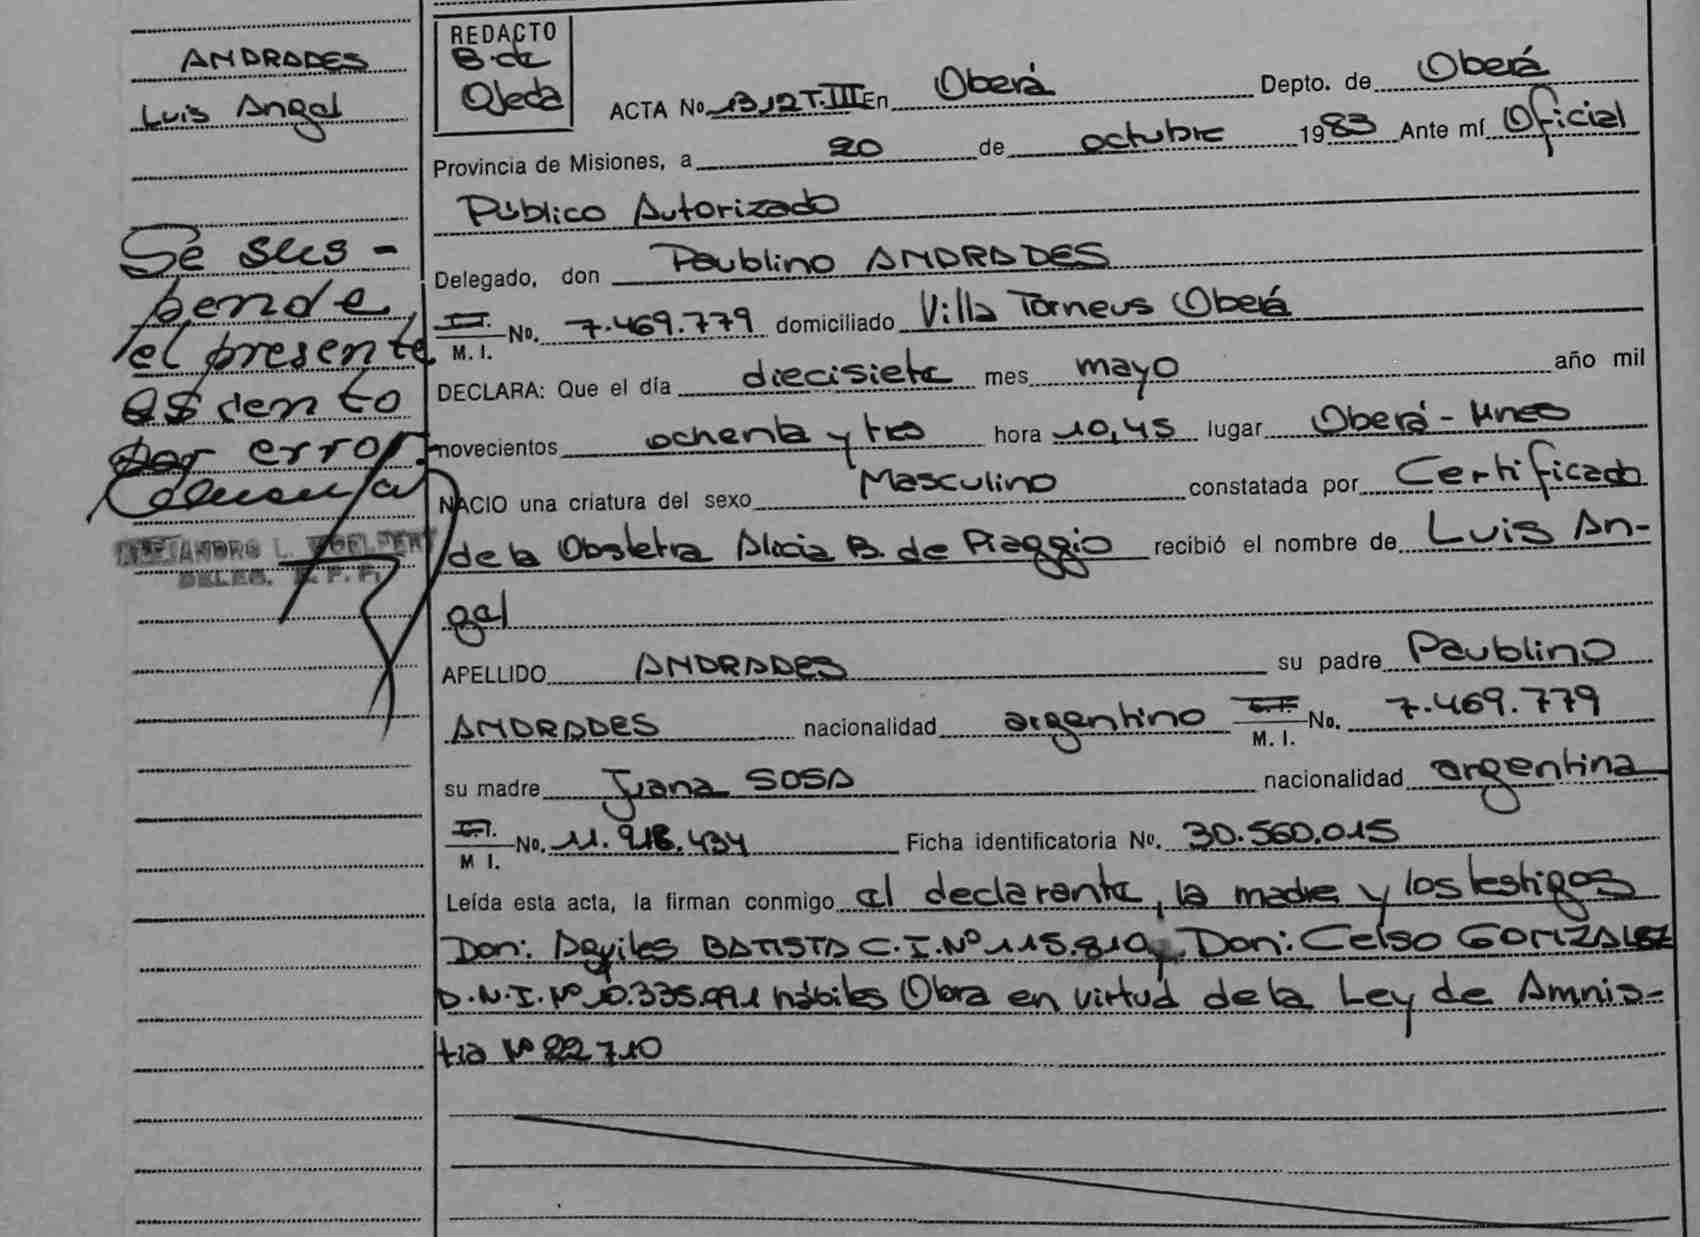 ANDRADES
Luis Angel
Se sus-
pende
el presente
asiento
por error.
ALEJANDRO L.
DELEG. R. P. P.
REDACTO
B. de
Ojeda
ACTA No 1312 T. III En Oberá Depto. de Oberá
Provincia de Misiones, a 20 de octubre 1983 Ante mí Oficial
Público Autorizado
Delegado, don Paublino ANDRADES
M. I. No. 7.469.779 domiciliado Villa Torneus Oberá
DECLARA: Que el día diecisiete mes mayo año mil
novecientos ochenta y tres hora 10,45 lugar Oberá - Mnes
NACIO una criatura del sexo Masculino constatada por Certificado
de la Obstetra Alicia B. de Piaggio recibió el nombre de Luis An-
gel
APELLIDO ANDRADES su padre Paublino
ANDRADES nacionalidad argentino M. I. No. 7.469.779
su madre Juana SOSA nacionalidad argentina
M I. No. 11.918.434 Ficha identificatoria No. 30.560.015
Leída esta acta, la firman conmigo el declarante, la madre y los testigos
Don: BATISTA C.I. Nº 115.810 y Don: Celso GONZALEZ
D.N.I. Nº 10.335.091 hábiles Obra en virtud de la Ley de Amnis-
tia Nº 22710